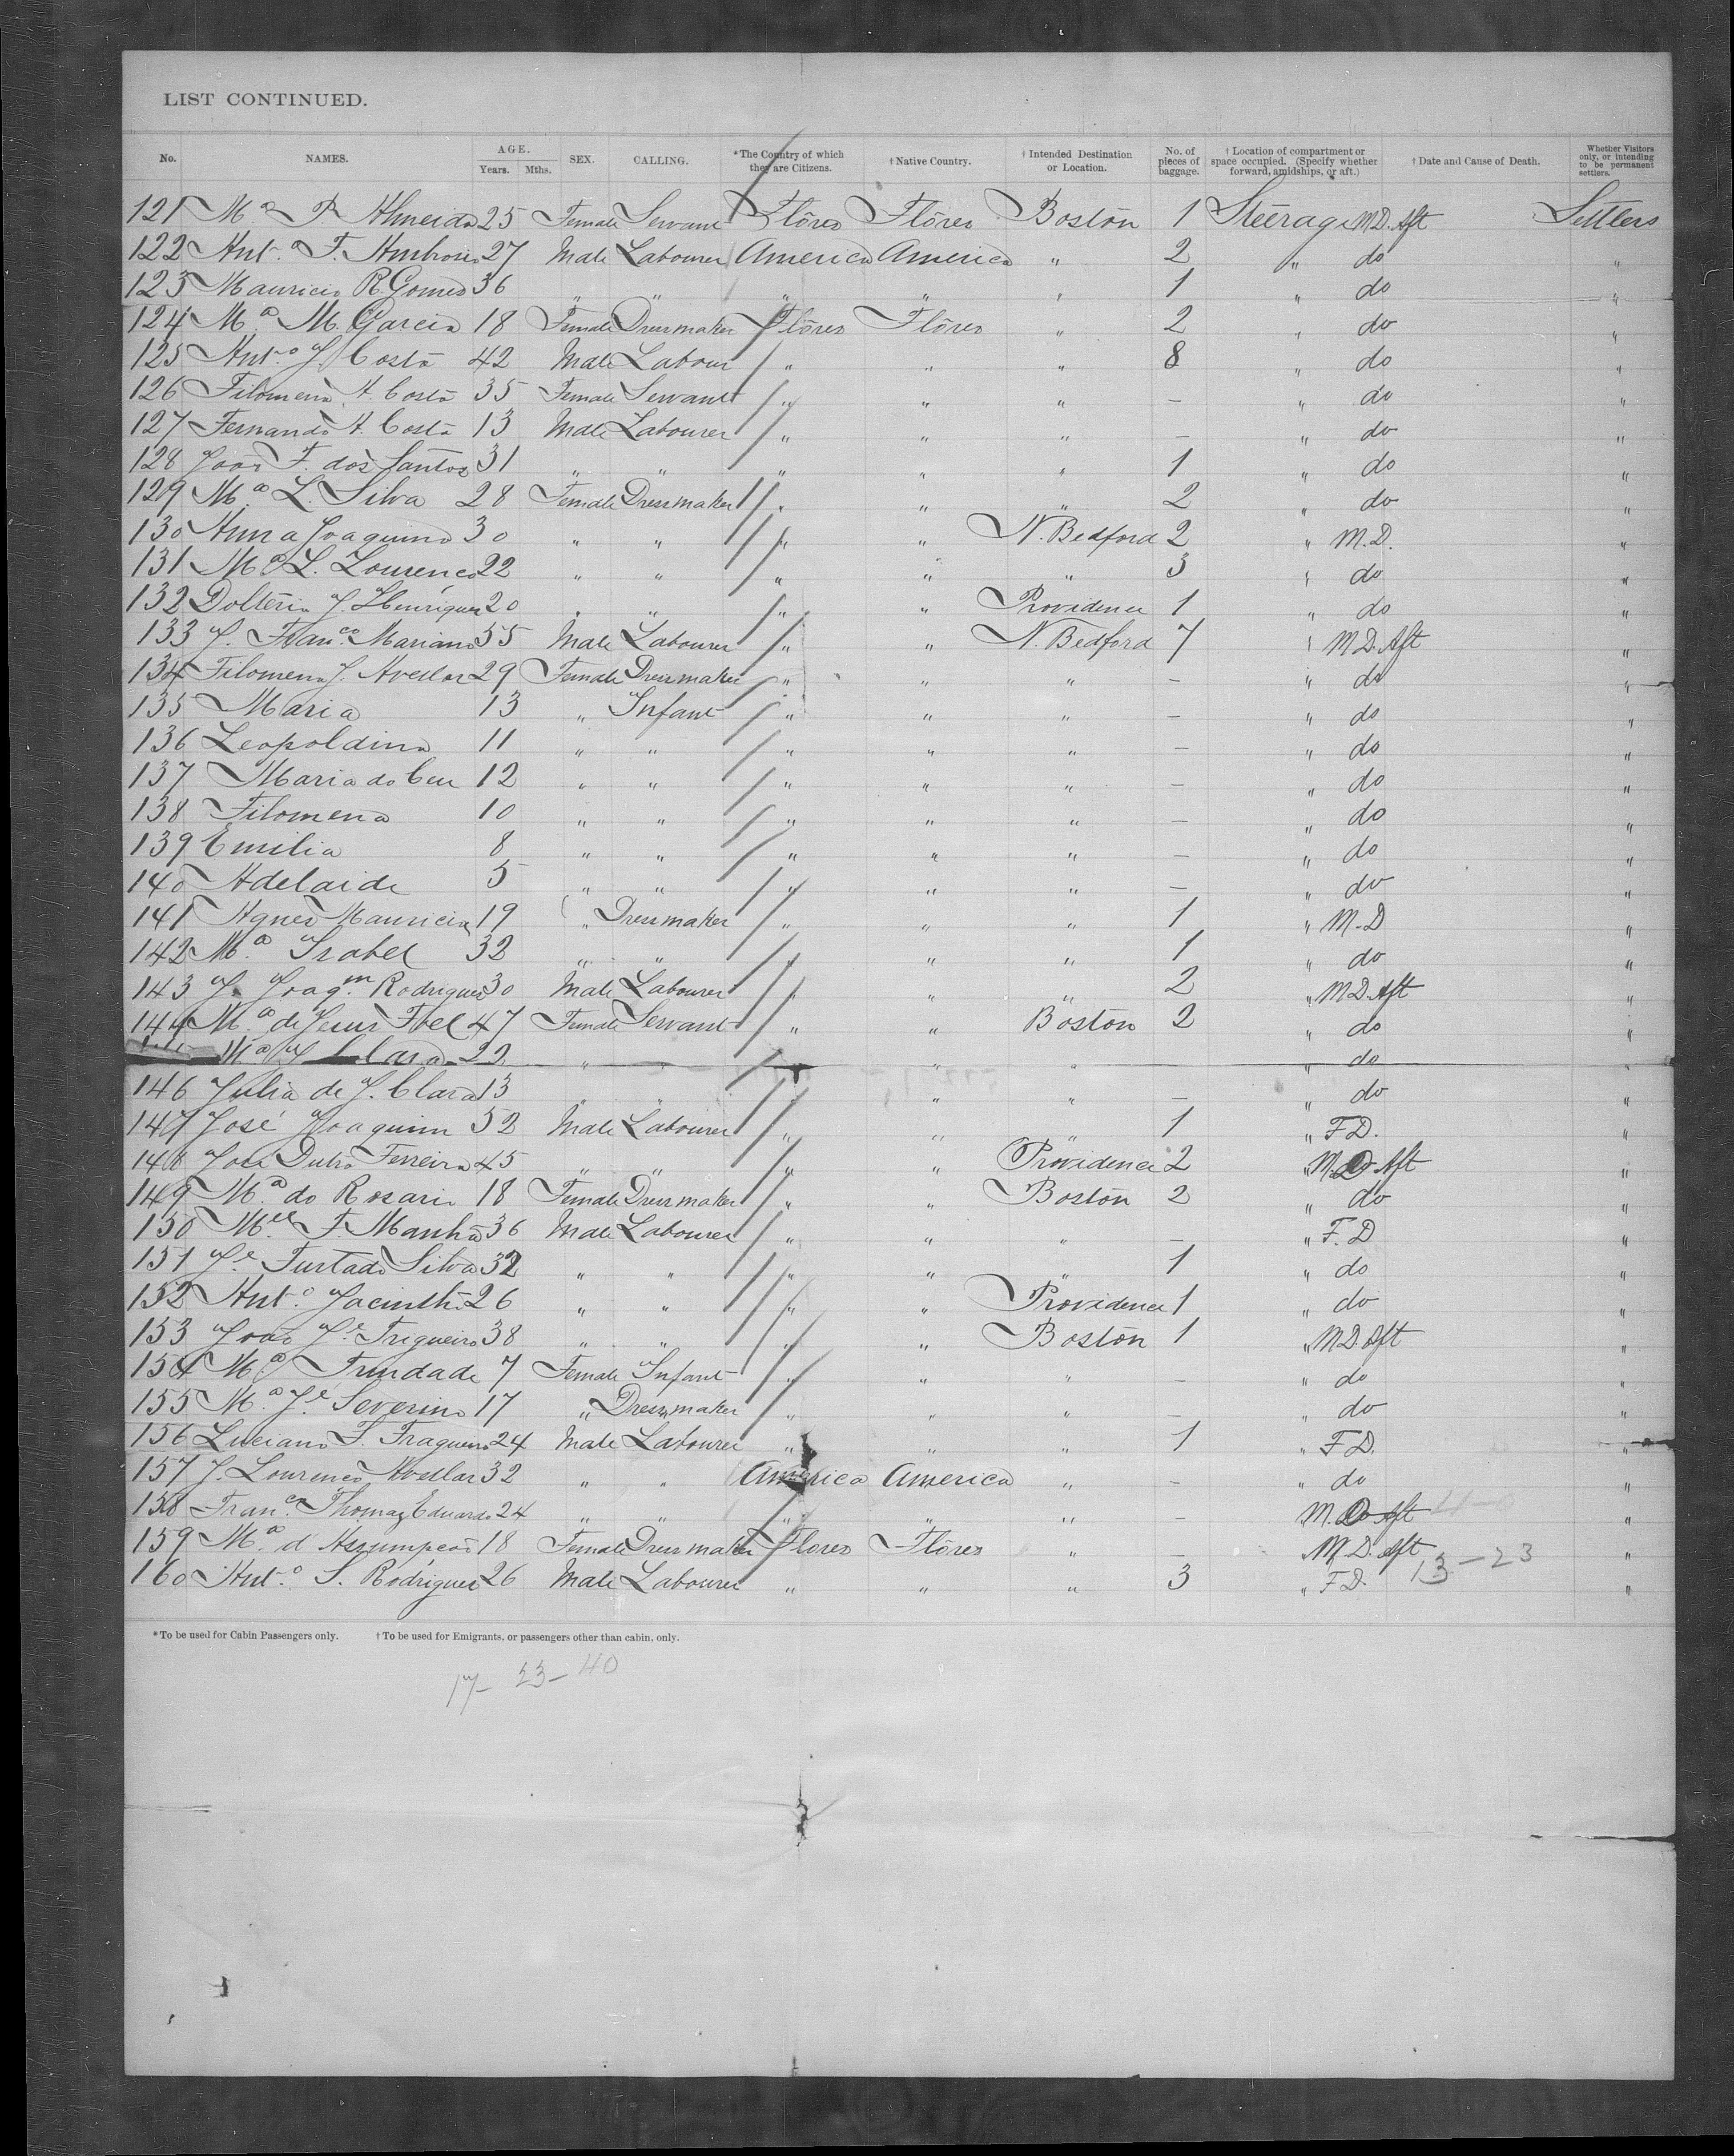 LIST CONTINUED.
No. NAMES. AGE. Years. Mths. SEX. CALLING. *The Country of which they are Citizens. †Native Country. †Intended Destination or Location. No. of pieces of baggage. †Location of compartment or space occupied. (Specify whether forward, amidships, or aft.) †Date and Cause of Death. Whether Visitors only, or intending to be permanent settlers.
121 Mª P. Almeida 25 Female Servant Flôres Flôres Boston 1 Steerage M.D. Aft Settlers
122 Antº F. Ambrosio 27 Male Labourer America America " 2 " do "
123 Mauricio R. Gomes 36 " " " " " 1 " do "
124 Mª M. Garcia 18 Female Dressmaker Flôres Flôres " 2 " do "
125 Antº J. Costa 42 Male Labour " " " 8 " do "
126 Filomena A. Costa 35 Female Servant " " " — " do "
127 Fernando A. Costa 13 Male Labourer " " " — " do "
128 João F. dos Santos 31 " " " " " 1 " do "
129 Mª L. Silva 28 Female Dressmaker " " " 2 " do "
130 Anna Joaquina 30 " " " " N. Bedford 2 " M.D. "
131 Mª L. Lourenço 22 " " " " " 3 " do "
132 J. Henriques 20 " " " " Providence 1 " do "
133 J. Franco Mariano 55 Male Labourer " " N. Bedford 7 " M.D. Aft "
134 Filomena J. Avellar 29 Female Dressmaker " " " — " do "
135 Maria 13 " Infant " " " — " do "
136 Leopoldina 11 " " " " " — " do "
137 Maria do Ceu 12 " " " " " — " do "
138 Filomena 10 " " " " " — " do "
139 Emilia 8 " " " " " — " do "
140 Adelaide 5 " " " " " — " do "
141 Agnes Mauricia 19 " Dressmaker " " " 1 " M.D "
142 Mª Isabel 32 " " " " " 1 " do "
143 J. Joaqm Rodrigues 30 Male Labourer " " " 2 " M.D. Aft "
144 Mª de Jesus 47 Female Servant " " Boston 2 " do "
Mª Clara 22 " " " " — " do "
146 Julia de J. Clara 13 " " " " " — " do "
147 José Joaquim 52 Male Labourer " " " 1 " F.D. "
148 José Dutra Ferreira 45 " " " " Providence 2 " M.D. Aft "
149 Mª do Rosario 18 Female Dressmaker " " Boston 2 " do "
150 Mel F. Manha 36 Male Labourer " " " — " F.D "
151 Je Furtado Silva 32 " " " " " 1 " do "
152 Antº Jacintho 26 " " " " Providence 1 " do "
153 João Je Trigueiro 38 " " " " Boston 1 " M.D. Aft "
154 Mª Trindade 7 Female Infant " " " — " do "
155 Mª Je Severino 17 " Dressmaker " " " — " do "
156 Luciano F. Fragueiro 24 Male Labourer " " " 1 " F.D. "
157 J. Lourenço Avellar 32 " " America America " — " do "
158 Franco Thomaz Eduardo 24 " " " " " — M.D. Aft "
159 Mª d'Assumpção 18 Female Dressmaker Flores Flôres " — " M.D. Aft "
160 Antº S. Rodrigues 26 Male Labourer " " " 3 " F.D. 13 – 23 "
*To be used for Cabin Passengers only. †To be used for Emigrants, or passengers other than cabin, only.
17 – 23 – 40